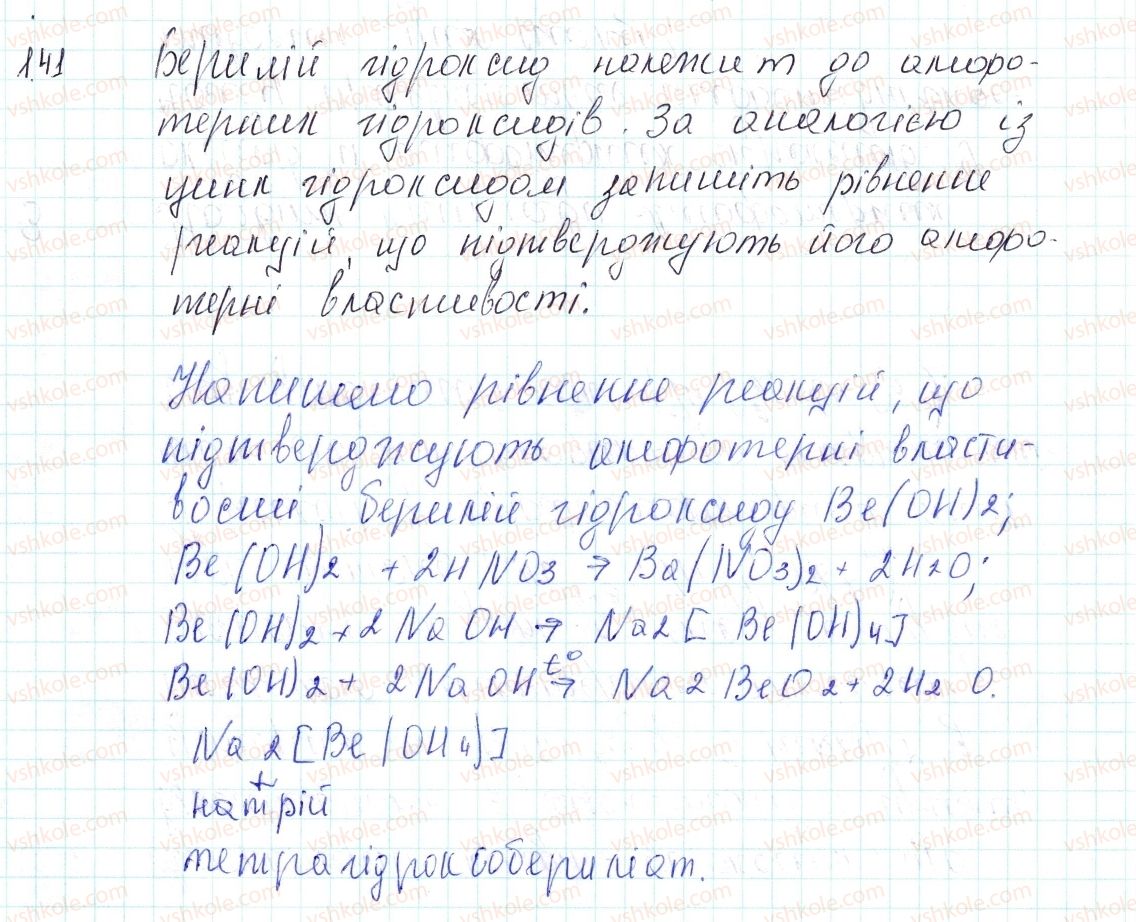 141 Берилій гідроксид належит до амфо-
терних гідроксидів. За аналогією із
цинк гідроксидом запишіть рівненне
реакцій, що підтверджують його амфо-
терні властивості.
Напишемо рівненне реакцій, що
підтверджують амфотерні власти-
восмі берилій гідроксиду Be(OH)2;
Be(OH)2 + 2HNO3 → Ba(NO3)2 + 2H2O;
Be(OH)2 + 2NaOH → Na2[Be(OH)4]
Be(OH)2 + 2NaOH t° → Na2BeO2 + 2H2O.
Na2[Be(OH4)]
+
натрій
тетрагідроксобериліат.